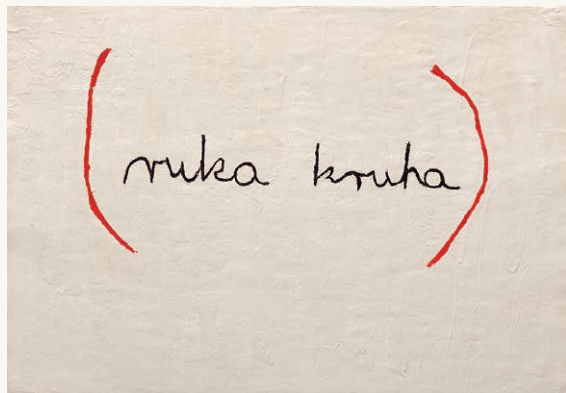 (ruka kruha)